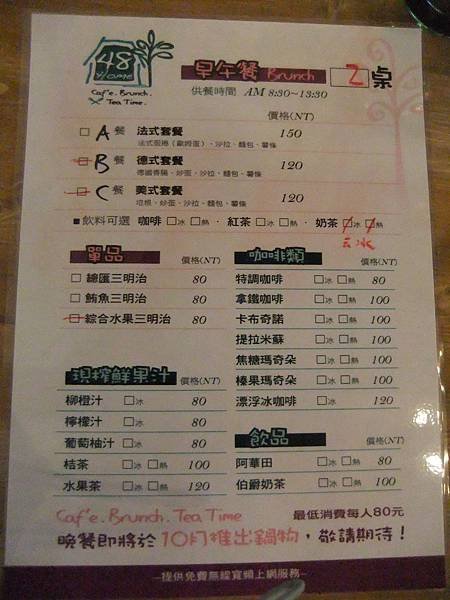 48
Home
Caf'e. Brunch.
Tea Time.
早午餐 Brunch 2 桌
供餐時間 AM 8:30~13:30
價格(NT)
□ A 餐 法式套餐 150
法式蛋捲(歐姆蛋)、沙拉、麵包、薯條
□ B 餐 德式套餐 120
德國香腸、炒蛋、沙拉、麵包、薯條
□ C 餐 美式套餐 120
培根、炒蛋、沙拉、麵包、薯條
■飲料可選 咖啡 □冰 □熱 · 紅茶 □冰 □熱 · 奶茶 □冰 □熱
去冰
單品 價格(NT)
□ 總匯三明治 80
□ 鮪魚三明治 80
□ 綜合水果三明治 80
現榨鮮果汁 價格(NT)
柳橙汁 □冰 80
檸檬汁 □冰 80
葡萄柚汁 □冰 80
桔茶 □冰 □熱 100
水果茶 □冰 □熱 120
咖啡類 價格(NT)
特調咖啡 □冰 □熱 80
拿鐵咖啡 □冰 □熱 100
卡布奇諾 □冰 □熱 100
提拉米蘇 □冰 □熱 100
焦糖瑪奇朵 □冰 □熱 100
榛果瑪奇朵 □冰 □熱 100
漂浮冰咖啡 □冰 120
飲品 價格(NT)
阿華田 □冰 □熱 100
伯爵奶茶 □冰 □熱 100
Caf'e. Brunch. Tea Time 最低消費每人80元
晚餐即將於 10月推出鍋物，敬請期待！
—提供免費無線寬頻上網服務—